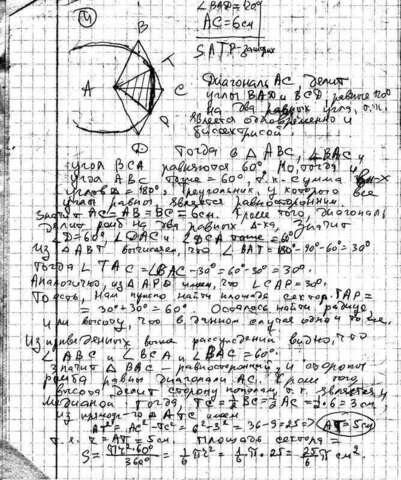 4
∠BAD=120°
AC=6см
SАТР-
B
T
A
C
P
D
Диагональ AC делит
углы BAD и BCD равные 120°
на два равных угла, т.к.
является одновременно и
биссектрисой.
Тогда в △ABC, ∠BAC и
угол BCA равняются 60°. Но, тогда и
угол ABC тоже = 60°, т.к. сумма
углов △ = 180°, треугольник, у которого все
углы равны, является равносторонним.
Значит AC=AB=BC=6см. Кроме того, диагональ
делит ромб на два равных △-ка, значит
∠D=60°, ∠DAC и ∠DCA тоже =60°
Из △ABT вычисляем, что ∠BAT=180°-90°-60°=30°
Тогда ∠TAC=∠BAC-30°=60°-30°=30°.
Аналогично, из △APD имеем, что ∠CAP=30°.
То есть, нам нужно найти площадь сектора TAP=
=30°+30°=60°. Осталось найти радиус
или высоту, что в данном случае одно и то же.
Из приведенных выше рассуждений видно, что
∠ABC и ∠BCA и ∠BAC=60°.
Значит △BAC - равносторонний, и стороны
ромба равны диагонали AC. Кроме того
высота делит сторону пополам, т.к. является и
медианой. Тогда, TC=½BC=½AC=½·6=3см,
из прямоуг-го △ATC имеем
AT²=AC²-TC²=6²-3²=36-9=25=> AT=5см
т.е. r=AT=5см. Площадь сектора =
S=πr²·60°/360°=1/6πr²=1/6π·25=25/6π см².